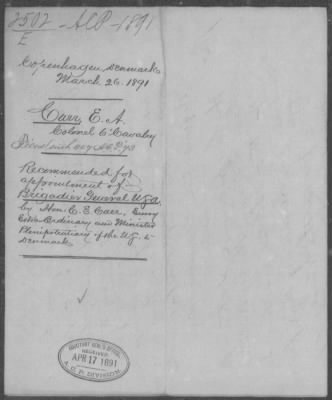 2502 - ACP - 1891
E
Copenhagen, Denmark
March 26. 1891
Carr, E. A.
Colonel 6" Cavalry
Recommended for
appointment of
Brigadier General U.S.A.
by Hon. C. E. Carr, Envoy
Extra Ordinary and Minister
Plenipotentiary of the U.S. to
Denmark
ADJUTANT GENL'S OFFICE
RECEIVED
APR 17 1891